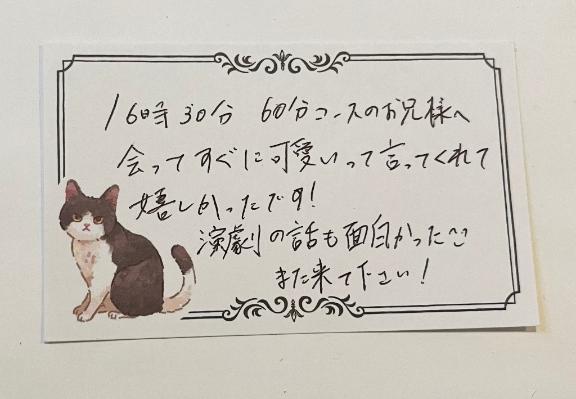 16時30分 60分コースのお兄様へ
会ってすぐに可愛いって言ってくれて
嬉しかったです!
演劇の話も面白かった^^
また来て下さい!